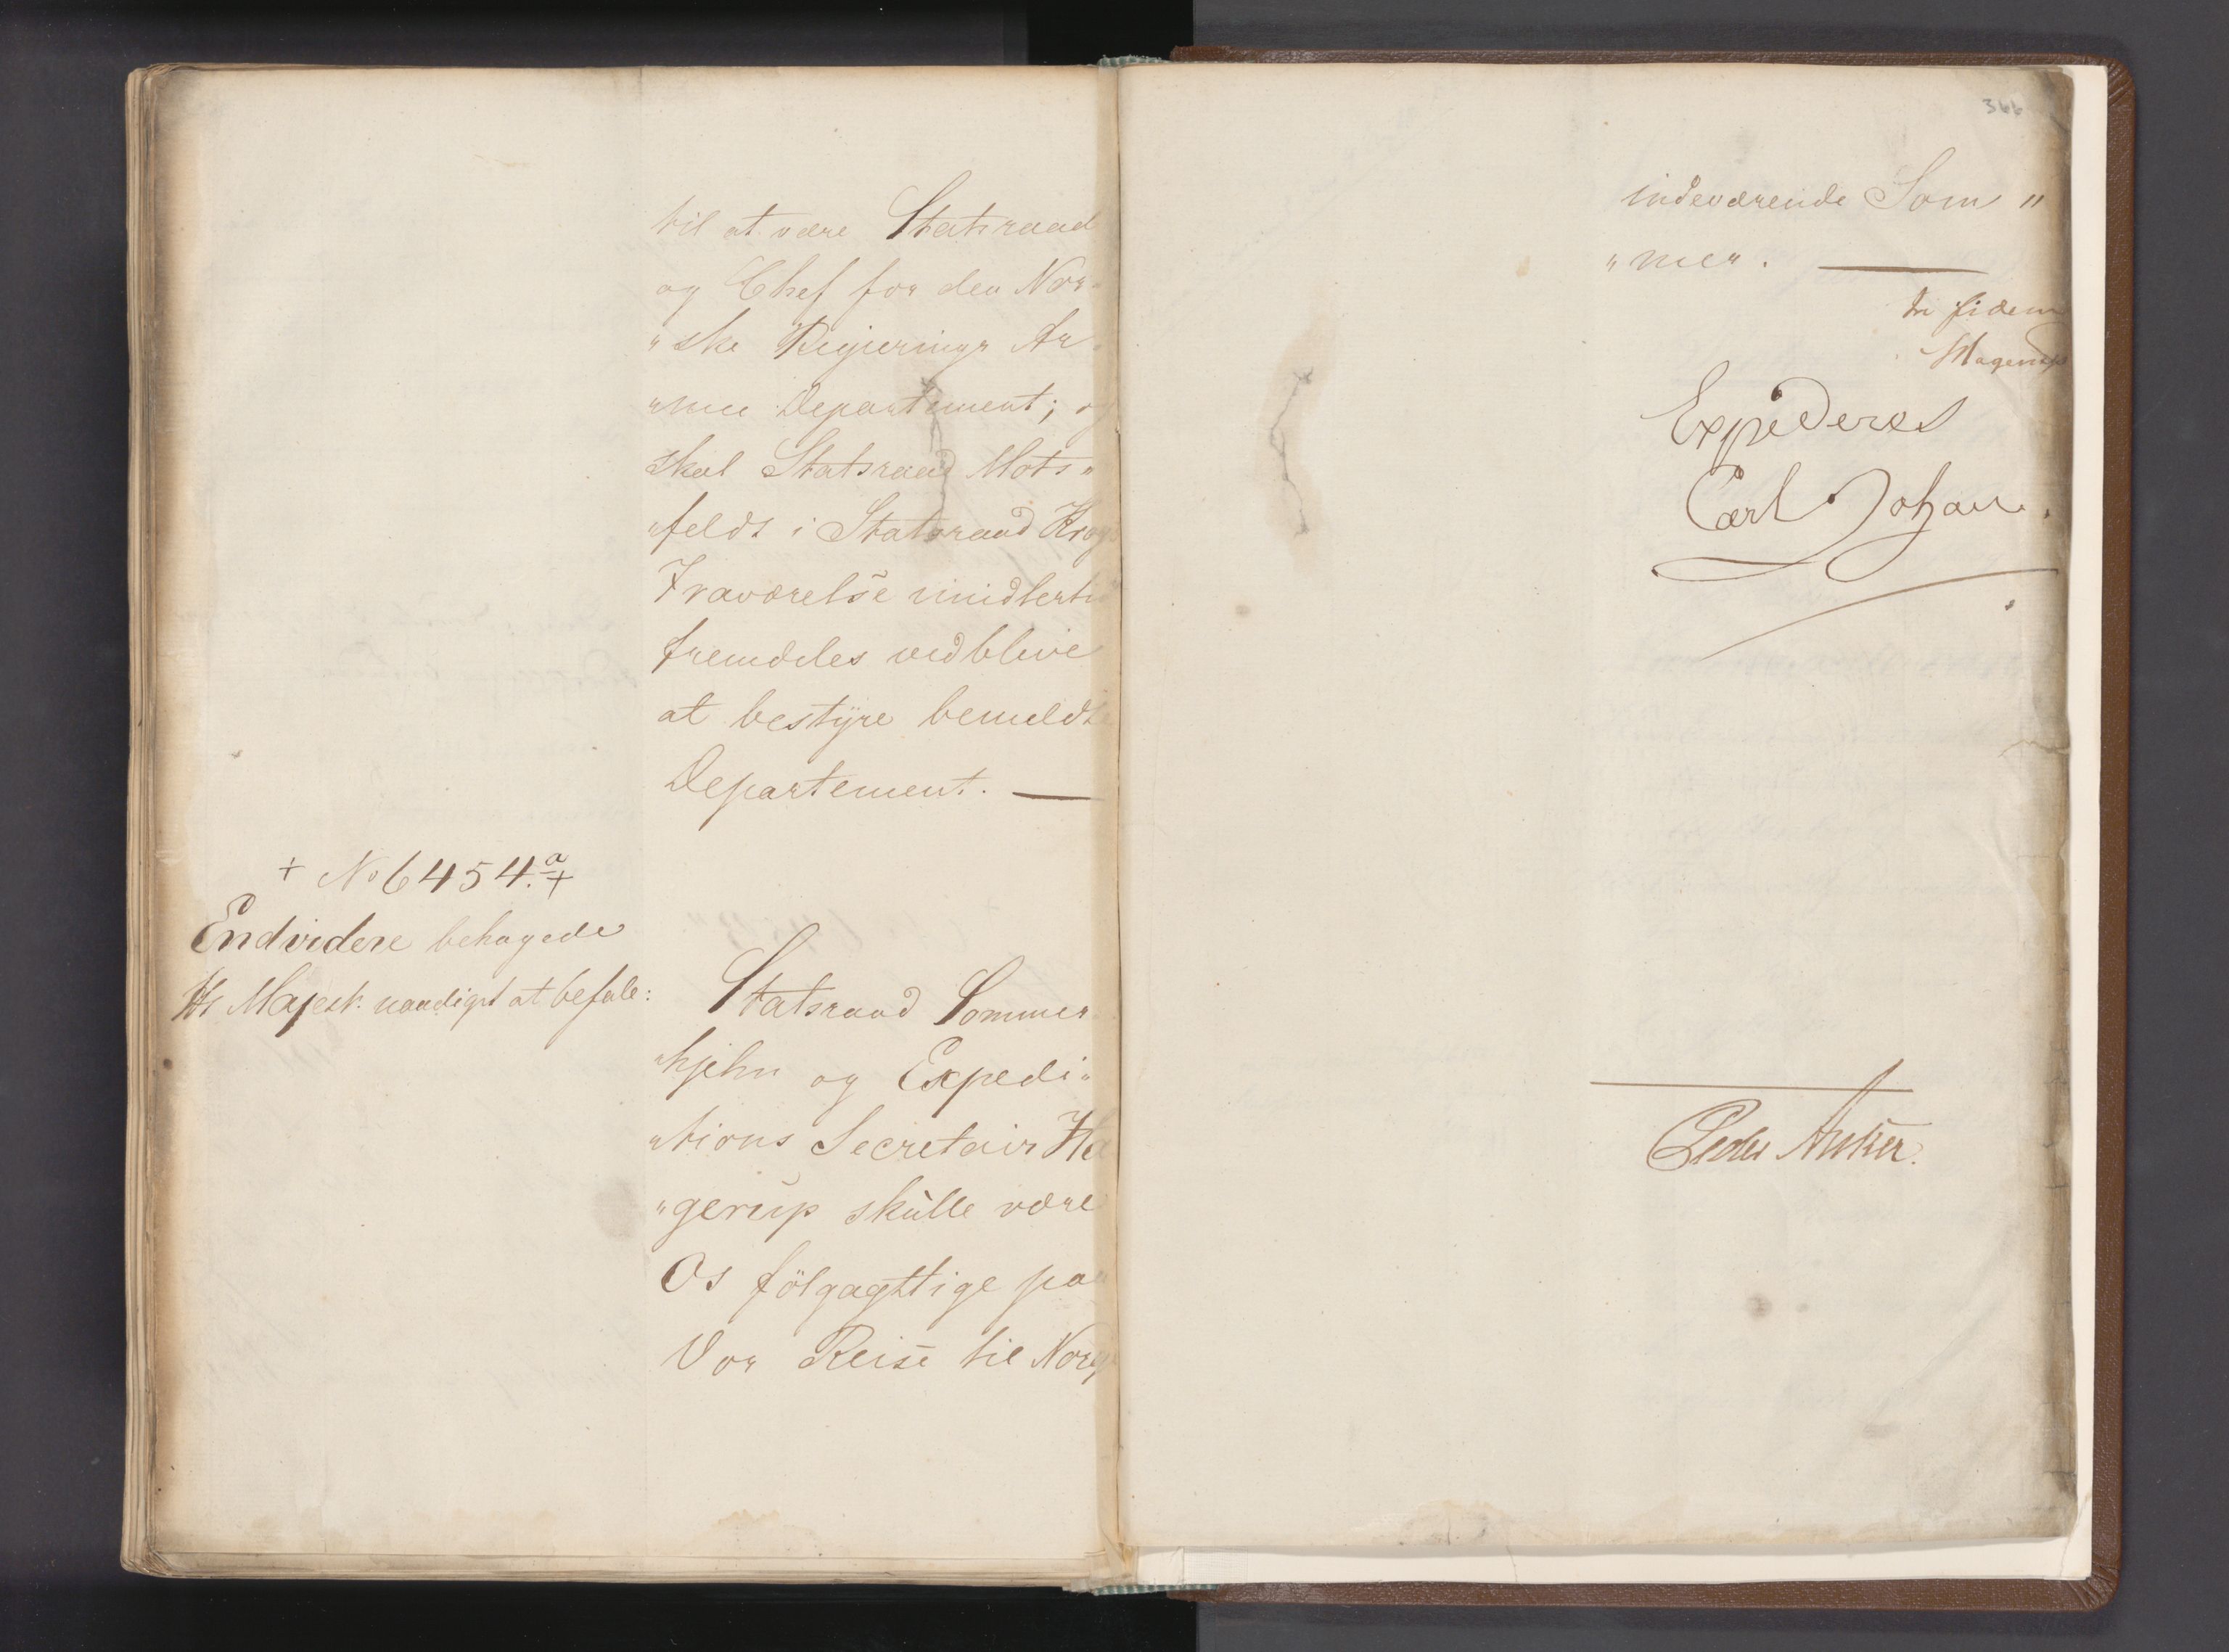 til at være Statsraad
og Chef for den Nor-
„ske Regjerings Ar-
„mee Departement; og
skal Statsraad Mots„
„feldt i Statsraad Krog
Fraværelse imidlertid
fremdeles vedblive
at bestÿre bemeldte
Departement. —
+ No 6454.a +
Endvidere behagede
Hs Majest. naadigst at befale:
Statsraad Sommer
„hjelm og Expedi„
„tions Secretair Ha
„gerup skulle være
Os fölgagttige paa
Vor Reise til Norge
366
indeværende Som„
„mer. —
In fidem
Hagerup
Expederes
Carl Johan.
Peder Anker.